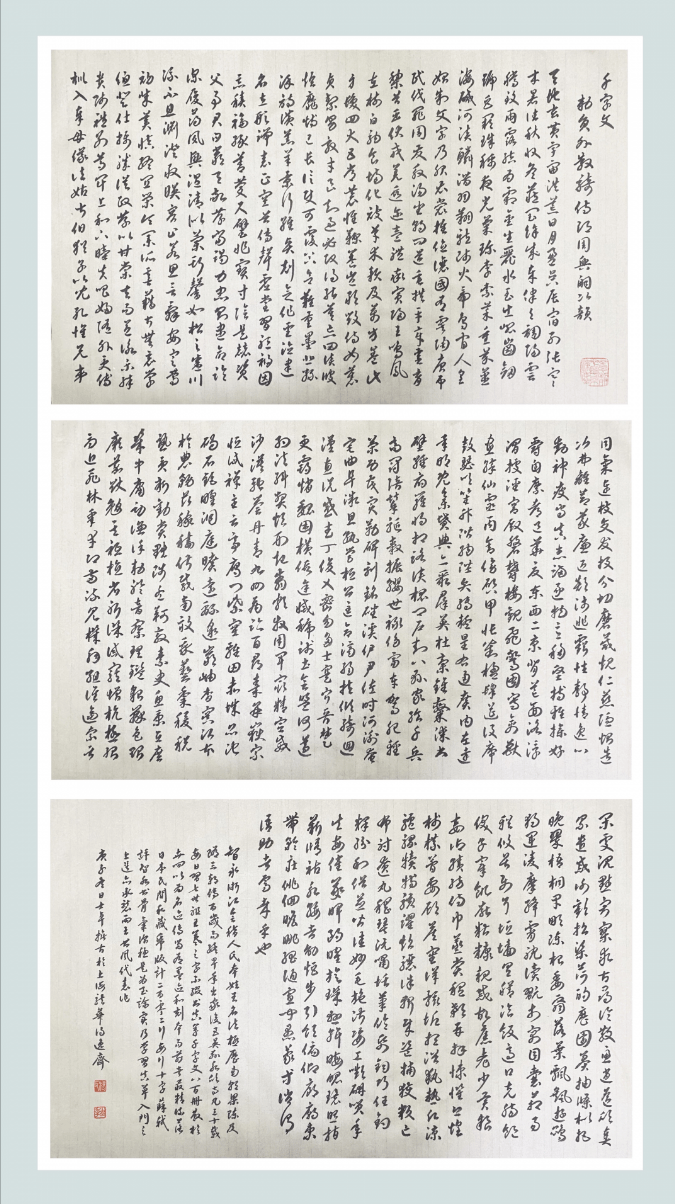 千字文
敕員外散騎侍郎周興嗣次韻
天地玄黃宇宙洪荒日月盈昃辰宿列張寒
來暑往秋收冬藏閏餘成歲律呂調陽雲
騰致雨露結為霜金生麗水玉出崑崗劍
號巨闕珠稱夜光菓珍李柰菜重芥薑
海鹹河淡鱗潛羽翔龍師火帝鳥官人皇
始制文字乃服衣裳推位讓國有虞陶唐弔
民伐罪周發殷湯坐朝問道垂拱平章愛育
黎首臣伏戎羌遐邇壹體率賓歸王鳴鳳
在樹白駒食場化被草木賴及萬方蓋此
身髮四大五常恭惟鞠養豈敢毀傷女慕
貞絜男效才良知過必改得能莫忘罔談彼
短靡恃己長信使可覆器欲難量墨悲絲
染詩讚羔羊景行維賢剋念作聖德建
名立形端表正空谷傳聲虛堂習聽禍因
惡積福緣善慶尺璧非寶寸陰是競資
父事君曰嚴與敬孝當竭力忠則盡命臨
深履薄夙興溫凊似蘭斯馨如松之盛川
流不息淵澄取映容止若思言辭安定篤
初誠美慎終宜令榮業所基籍甚無竟學
優登仕攝職從政存以甘棠去而益詠樂殊
貴賤禮別尊卑上和下睦夫唱婦隨外受傅
訓入奉母儀諸姑伯叔猶子比兒孔懷兄弟
同氣連枝交友投分切磨箴規仁慈隱惻造
次弗離節義廉退顛沛匪虧性靜情逸心
動神疲守真志滿逐物意移堅持雅操好
爵自縻都邑華夏東西二京背芒面洛浮
渭據涇宮殿磐鬱樓觀飛驚圖寫禽獸
畫綵仙靈丙舍傍啟甲帳對楹肆筵設席
鼓瑟吹笙升階納陛弁轉疑星右通廣內左達
承明既集墳典亦聚群英杜稾鍾隸漆書
壁經府羅將相路俠槐卿戶封八縣家給千兵
高冠陪輦驅轂振纓世祿侈富車駕肥輕
策功茂實勒碑刻銘磻溪伊尹佐時阿衡奄
宅曲阜微旦孰營桓公匡合濟弱扶傾綺迴
漢惠說感武丁俊乂密勿多士寔寧晉楚
更霸趙魏困橫假途滅虢踐土會盟何遵
約法韓弊煩刑起翦頗牧用軍最精宣威
沙漠馳譽丹青九州禹跡百郡秦并嶽宗
恒岱禪主云亭雁門紫塞雞田赤城昆池
碣石鉅野洞庭曠遠綿邈巖岫杳冥治本
於農務茲稼穡俶載南畝我藝黍稷稅
熟貢新勸賞黜陟孟軻敦素史魚秉直庶
幾中庸勞謙謹敕聆音察理鑑貌辨色貽
厥嘉猷勉其祗植省躬譏誡寵增抗極殆
辱近恥林皋幸即兩疏見機解組誰逼索居
閑處沉默寂寥求古尋論散慮逍遙欣奏
累遣慼謝歡招渠荷的歷園莽抽條枇杷
晚翠梧桐早凋陳根委翳落葉飄颻遊鵾
獨運凌摩絳霄耽讀翫市寓目囊箱易輶
攸畏屬耳垣牆具膳飡飯適口充腸飽
飫享宰飢厭糟糠親戚故舊老少異糧
妾御績紡侍巾蒸嘗稽顙再拜悚懼恐惶
牋牒簡要顧答審詳骸垢想浴執熱願涼
驢騾犢特駭躍超驤誅斬賊盜捕獲叛亡
布射遼丸嵇琴阮嘯恬筆倫紙鈞巧任釣
釋紛利俗並皆佳妙毛施淑姿工顰妍笑年
矢每催羲暉朗曜旋璣懸斡晦魄環照指
薪修祜永綏吉劭矩步引領俯仰廊廟束
帶矜莊徘徊瞻眺孤陋寡聞愚蒙等誚謂
語助者焉哉乎也
智永浙江會稽人氏本姓王名法極歷南朝梁陳及
隋三朝傳百歲高壽早年出家後居吳興永欣寺凡三十載
每日習七世祖王羲之字不輟書真草千字文八百冊散於
日本民間私藏 計二百零二行每行十字蘇軾
評智永書骨氣深穩
庚子冬日 於上海